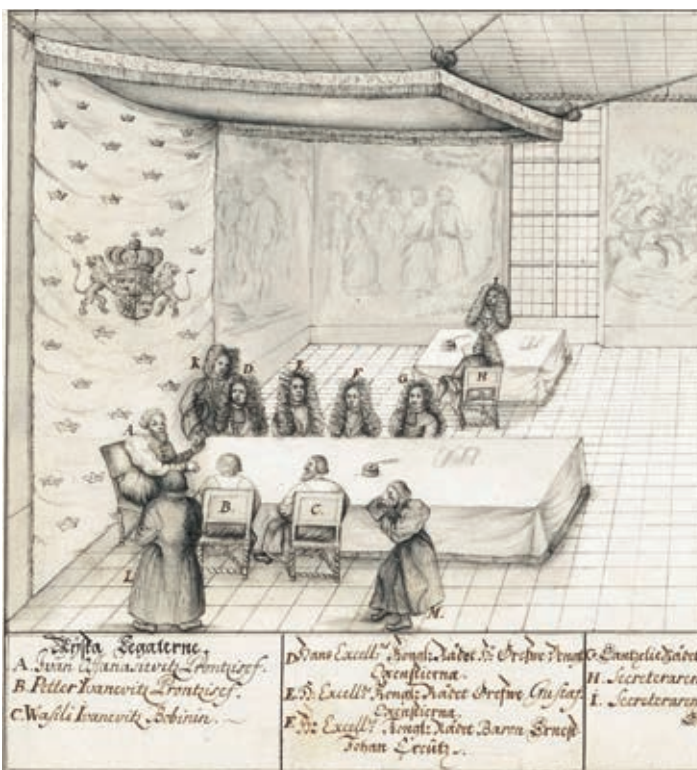 K
D.
E
F
G
I
H
A
B.
C.
L
M.
Rÿssa Legaterne.
A. Ivan Affanasiewitz Prontzisef.
B. Petter Ivanevitz Prontzisef.
C. Wasili Ivanevitz Bobinin.
D. Hans Excell:
Oxenstierna.
E. Hs Excell: Kongl: Rådet Grefwe Gustaf
Oxenstierna.
F. Hs Excell: Kongl: Rådet Baron Ernest
Johan Creütz.
G. Cantzelie Rådet
H. Secreteraren
I. Secreteraren